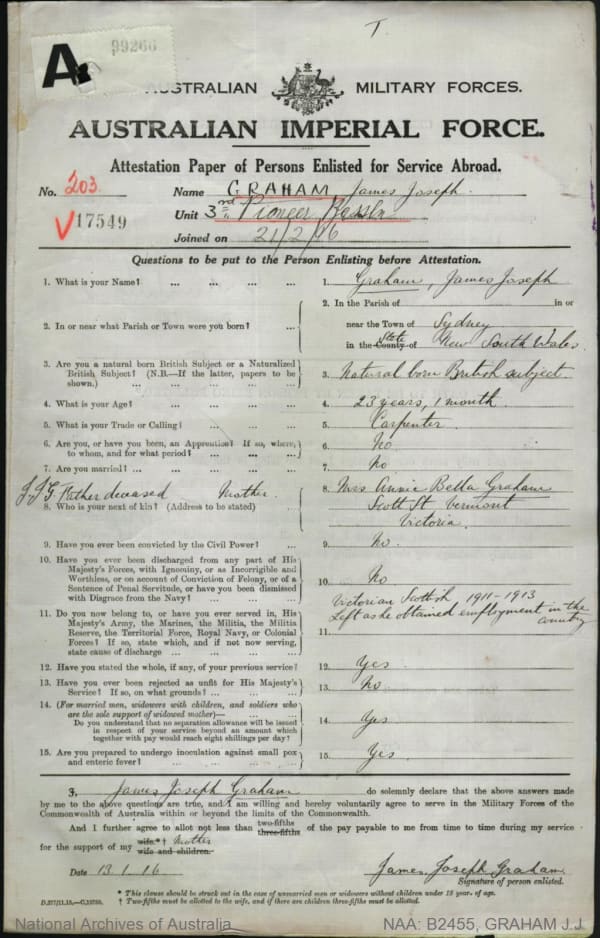 T.
A
99266
AUSTRALIAN MILITARY FORCES.
AUSTRALIAN IMPERIAL FORCE.
Attestation Paper of Persons Enlisted for Service Abroad.
No. 203 Name GRAHAM James Joseph.
V 17549 Unit 3rd Pioneer
Joined on 21/2/16
Questions to be put to the Person Enlisting before Attestation.
1. What is your Name? ... ... ... ... 1. Graham, James Joseph
2. In or near what Parish or Town were you born? ... 2. In the Parish of in or
near the Town of Sydney
in the County State of New South Wales
3. Are you a natural born British Subject or a Naturalized
British Subject? (N.B.—If the latter, papers to be
shown.) ... ... ... ... 3. Natural born British subject.
4. What is your Age? ... ... ... ... 4. 23 years, 1 month.
5. What is your Trade or Calling? ... ... ... 5. Carpenter.
6. Are you, or have you been, an Apprentice? If so, where,
to whom, and for what period? ... ... ... 6. No
7. Are you married? ... ... ... ... 7. No
J.J.G Father deceased Mother. 8. Mrs Annie Bella Graham
8. Who is your next of kin? (Address to be stated) ... Scott St. Vermont
Victoria.
9. Have you ever been convicted by the Civil Power? ... 9. No.
10. Have you ever been discharged from any part of His
Majesty's Forces, with Ignominy, or as Incorrigible and
Worthless, or on account of Conviction of Felony, or of a
Sentence of Penal Servitude, or have you been dismissed
with Disgrace from the Navy? ... ... ... 10. No
11. Do you now belong to, or have you ever served in, His
Majesty's Army, the Marines, the Militia, the Militia
Reserve, the Territorial Force, Royal Navy, or Colonial
Forces? If so, state which, and if not now serving,
state cause of discharge ... ... ... 11.
Victorian Scottish 1911-1913
Left as he obtained employment in the
country
12. Have you stated the whole, if any, of your previous service? 12. Yes
13. Have you ever been rejected as unfit for His Majesty's
Service? If so, on what grounds? ... ... ... 13. No
14. (For married men, widowers with children, and soldiers who
are the sole support of widowed mother)— ... ...
Do you understand that no separation allowance will be issued
in respect of your service beyond an amount which
together with pay would reach eight shillings per day? 14. Yes
15. Are you prepared to undergo inoculation against small pox
and enteric fever? ... ... ... ... 15. Yes.
I, James Joseph Graham do solemnly declare that the above answers made
by me to the above questions are true, and I am willing and hereby voluntarily agree to serve in the Military Forces of the
Commonwealth of Australia within or beyond the limits of the Commonwealth.
And I further agree to allot not less than two-fifths three-fifths of the pay payable to me from time to time during my service
for the support of my wife.*† Mother wife and children.
Date 13.1.16 James Joseph Graham
Signature of person enlisted.
* This clause should be struck out in the case of unmarried men or widowers without children under 18 year. of age.
† Two-fifths must be allotted to the wife, and if there are children three-fifths must be allotted.
National Archives of Australia NAA: B2455, GRAHAM J.J